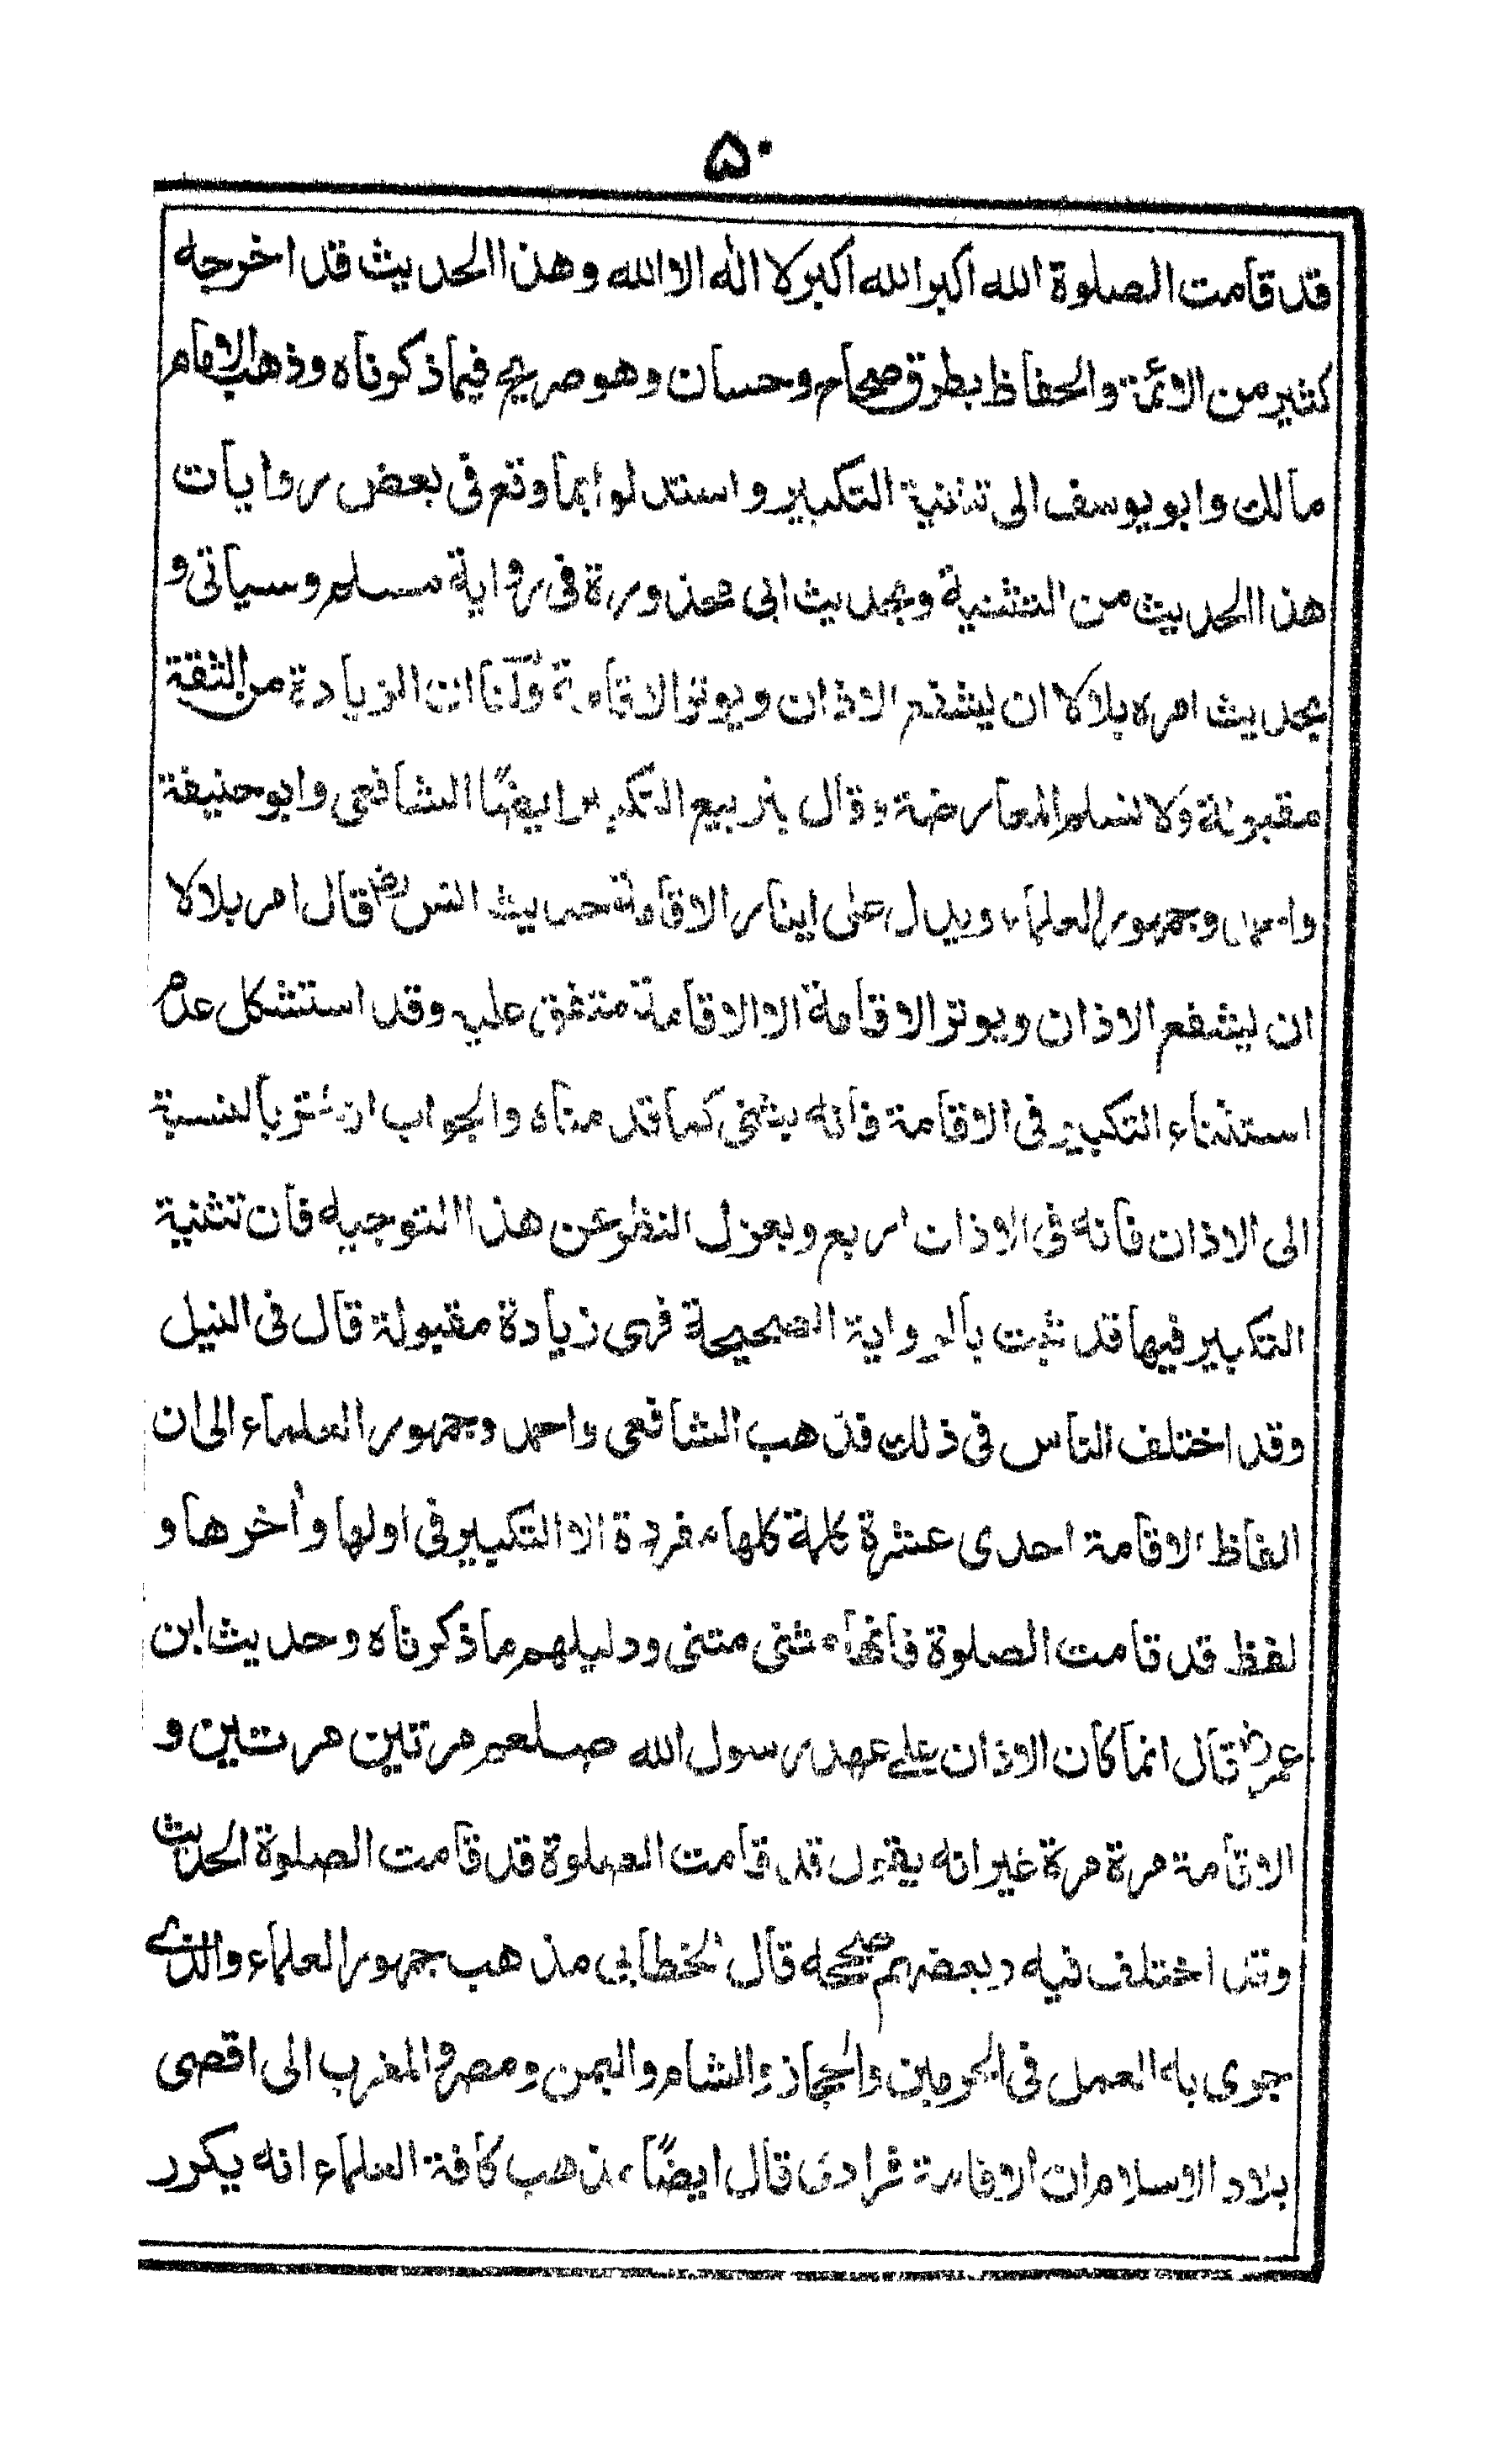 ۵۰
قد قامت الصلوة الله اكبر الله اكبر لا اله الا الله وهذا الحديث قد اخرجه
كثير من الائمة والحفاظ بطرق صحاح وحسان وهو صريح فيما ذكرناه وذهب الامام
مالك وابو يوسف الى تثنية التكبير واستدلوا بما وقع فى بعض روايات
هذا الحديث من التثنية وبحديث ابى محذورة فى رواية مسلم وسياتى و
بحديث امره بلالا ان يشفع الاذان ويوتر الاقامة ولنا ان الزيادة من الثقة
مقبولة ولا نسلم المعارضة وقال بتربيع التكبير ايضًا الشافعى وابو حنيفة
واحمد وجمهور العلماء ويدل على ايتار الاقامة حديث انس رض قال امر بلالا
ان يشفع الاذان ويوتر الاقامة الا الاقامة متفق عليه وقد استشكل عدم
استثناء التكبير فى الاقامة فانه يثنى كما قدمناه والجواب انه وتر بالنسبة
الى الاذان فانه فى الاذان اربع وبعزل النظر عن هذا التوجيه فان تثنية
التكبير فيها قد ثبت بالرواية الصحيحة فهى زيادة مقبولة قال فى النيل
وقد اختلف الناس فى ذلك فذهب الشافعى واحمد وجمهور العلماء الى ان
الفاظ الاقامة احدى عشرة كلمة كلها مفردة الا التكبير فى اولها وأخرها و
لفظ قد قامت الصلوة فانها مثنى مثنى ودليلهم ما ذكرناه وحديث ابن
عمر رض قال انما كان الاذان على عهد رسول الله صلعم مرتين مرتين و
الاقامة مرة مرة غير انه يقول قد قامت الصلوة قد قامت الصلوة الحديث
وقد اختلف فيه وبعضهم صححه قال الخطابى مذهب جمهور العلماء والذى
جرى به العمل فى الحرمين والحجاز والشام واليمن ومصر والمغرب الى اقصى
بلاد الاسلام ان الاقامة فرادى قال ايضًا مذهب كافة العلماء انه يكرر